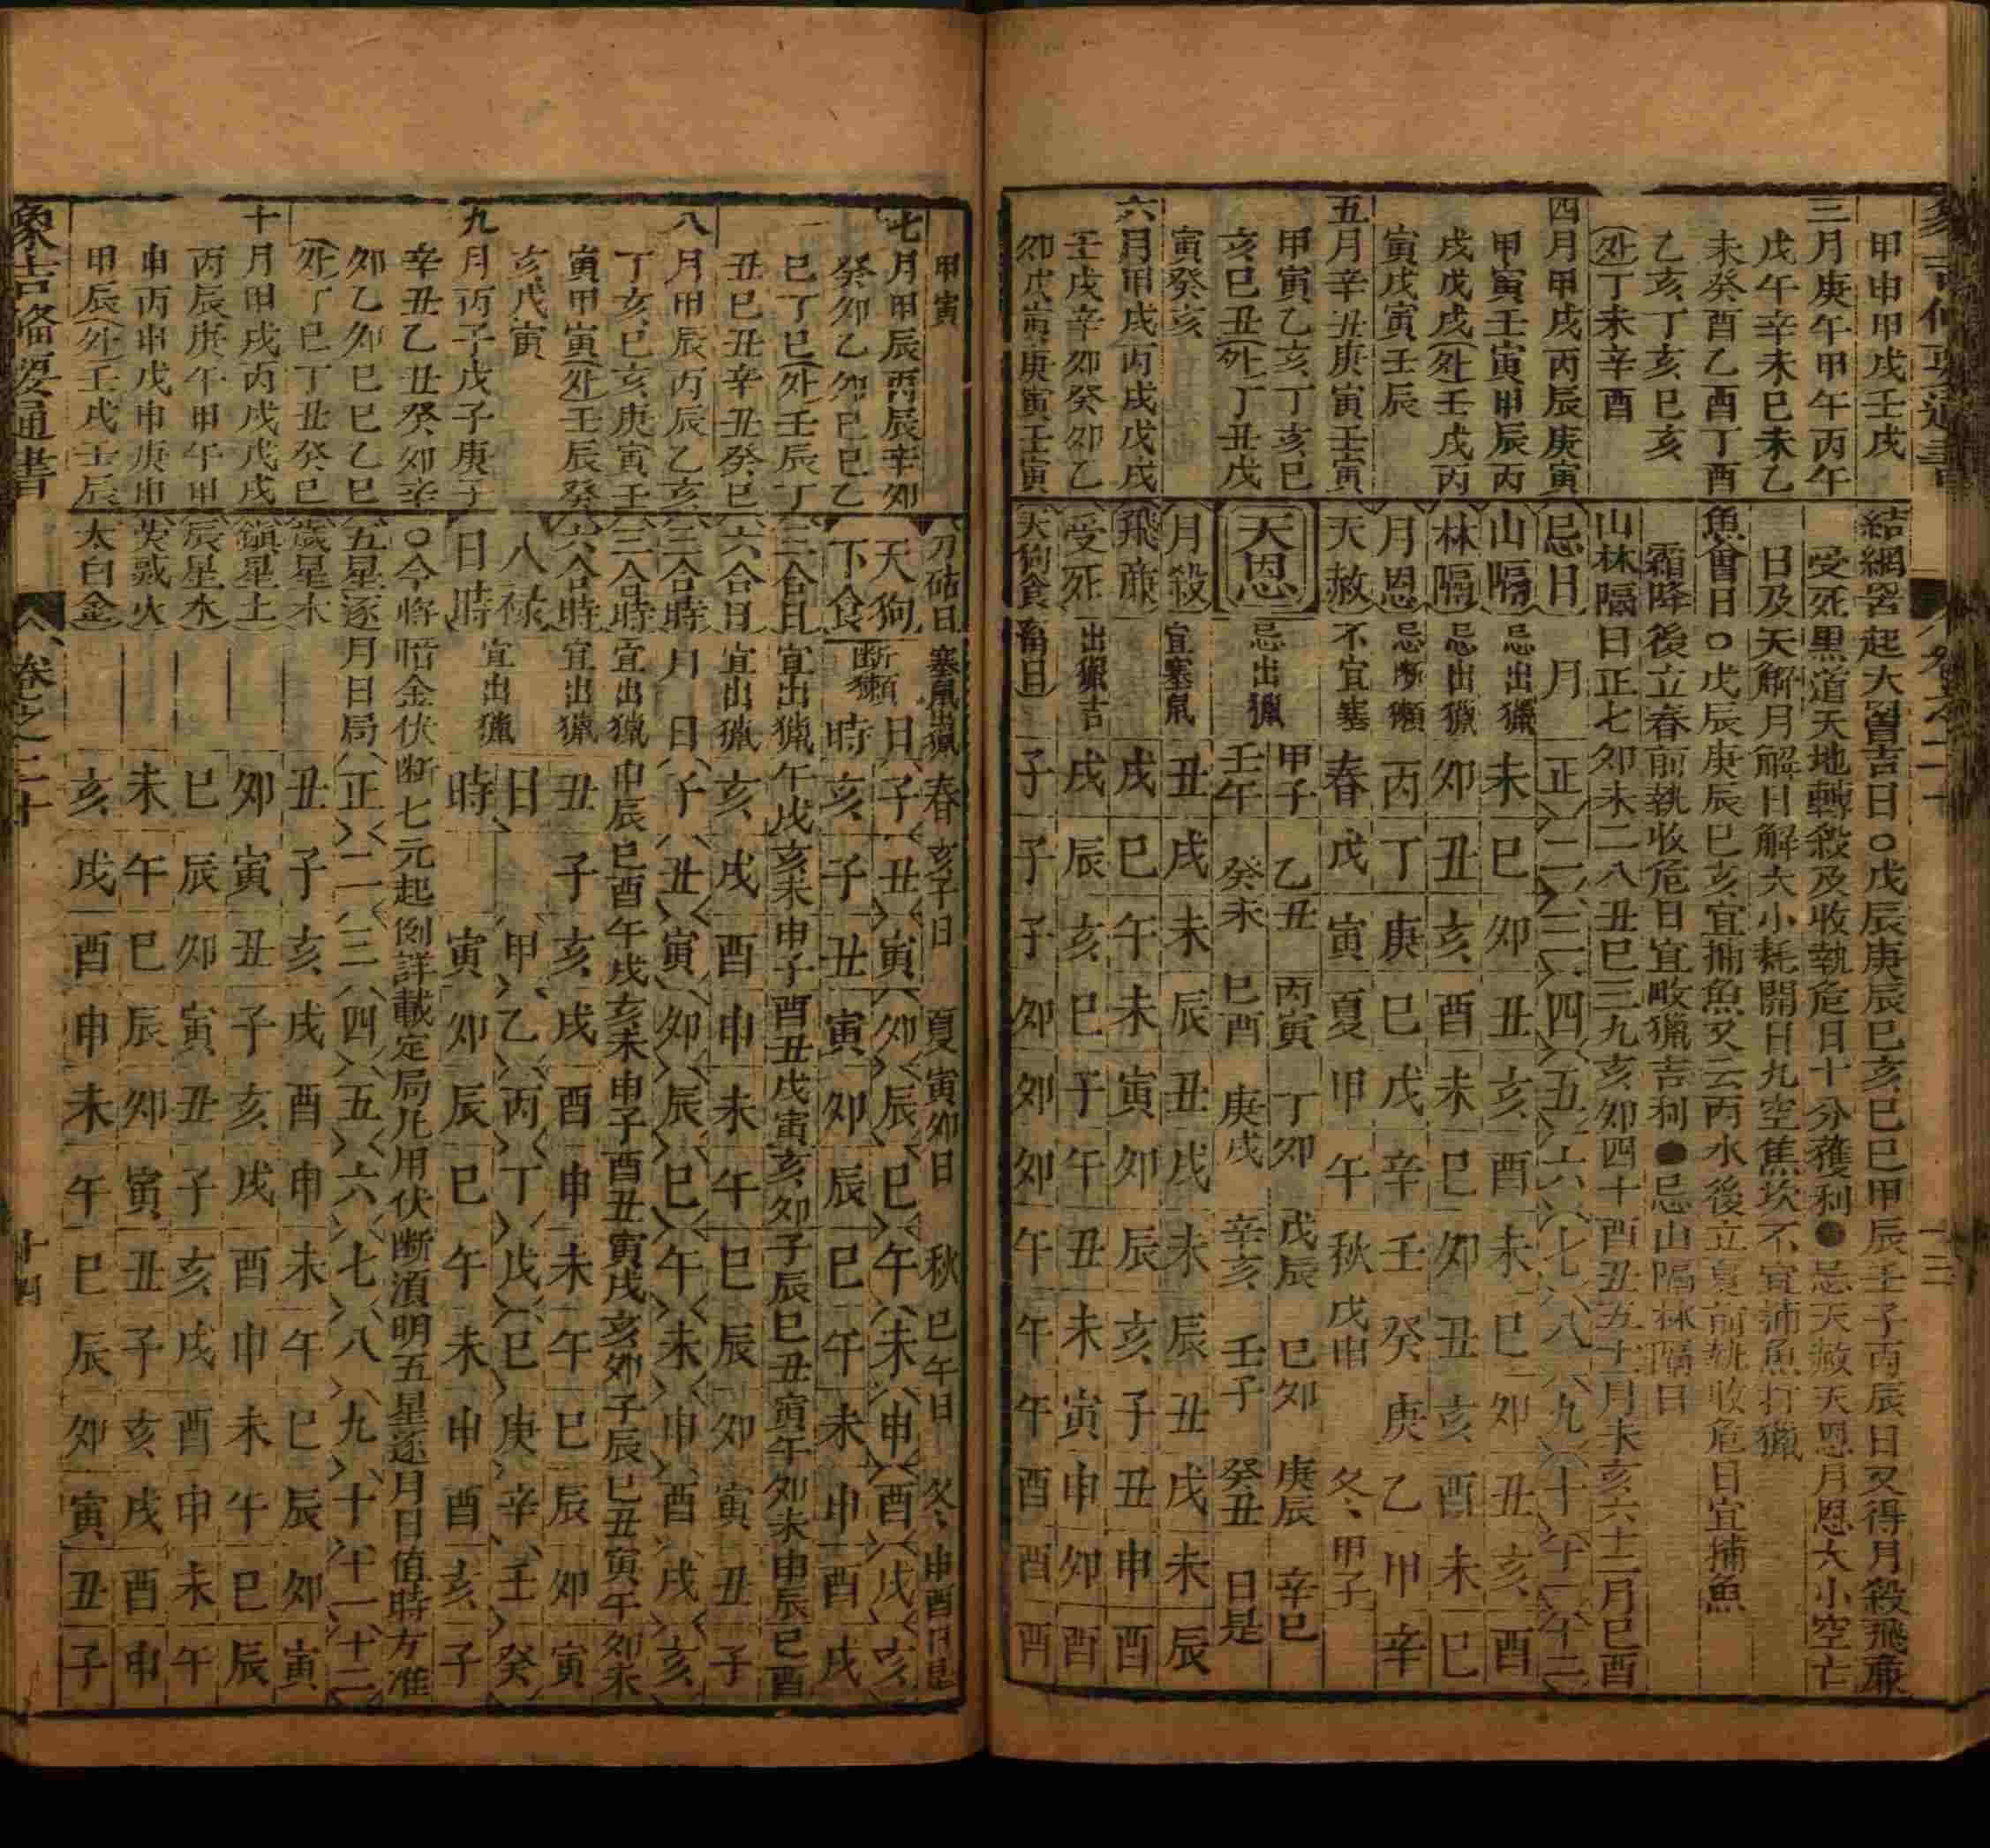 甲申甲戌壬戌
三月庚午甲午丙午
戊午辛未巳未乙
未癸酉乙酉丁酉
乙亥丁亥巳亥
丁未辛酉
四月甲戌丙辰庚寅
甲寅壬寅甲辰丙
戌戊戌壬戌丙
寅戊寅壬辰
五月辛丑庚寅壬寅
甲寅乙亥丁亥巳
亥巳丑丁丑戊
寅癸亥
六月甲戌丙戌戊戌
壬戌辛卯癸卯乙
卯戊寅庚寅壬寅
結網罟起大曾吉日○戊辰庚辰巳亥巳巳甲辰壬子丙辰日又得月殺飛廉
受死黑道天地轉殺及收執危日十分獲利●忌天赦天恩月恩大小空亡
日及天解月解日解大小耗開日九空焦坎不宜捕魚打獵
魚會日○戊辰庚辰巳亥宜捕魚又云雨水後立夏前執收危日宜捕魚
霜降後立春前執收危日宜畋獵吉利●忌山隔林隔日
山林隔日正七卯未二八丑巳三九亥卯四十酉丑五十一月未亥六十二月巳酉
忌日 月 正 二 三 四 五 六 七 八 九 十 十一 十二
山隔 忌出獵 未 巳 卯 丑 亥 酉 未 巳 卯 丑 亥 酉
林隔 忌出獵 卯 丑 亥 酉 未 巳 卯 丑 亥 酉 未 巳
月恩 忌断獺 丙 丁 庚 巳 戊 辛 壬 癸 庚 乙 甲 辛
天赦 不宜塞 春 戊寅 夏 甲午 秋 戊申 冬 甲子
天恩 忌出獵 甲子 乙丑 丙寅 丁卯 戊辰 巳卯 庚辰 辛巳
壬午 癸未 巳酉 庚戌 辛亥 壬子 癸丑 日是
月殺 宜塞鼠 丑 戌 未 辰 丑 戌 未 辰 丑 戌 未 辰
飛廉 戌 巳 午 未 寅 卯 辰 亥 子 丑 申 酉
受死 出獵吉 戌 辰 亥 巳 子 午 丑 未 寅 申 卯 酉
天狗食 畜日 子 子 子 卯 卯 卯 午 午 午 酉 酉 酉
甲寅
七月甲辰丙辰辛卯
癸卯乙卯巳巳乙
巳丁巳壬辰丁
丑巳丑辛丑癸巳
八月甲辰丙辰乙亥
丁亥巳亥庚寅壬
寅甲寅壬辰癸
亥戊寅
九月丙子戊子庚子
辛丑乙丑癸卯辛
卯乙卯巳巳乙巳
丁巳丁丑癸巳
十月甲戌丙戌戊戌
丙辰庚午甲午甲
申丙申戊申庚申
甲辰壬戌壬辰
刀砧日 塞鼠出獵 春 亥子日 夏 寅卯日 秋 巳午日 冬 申酉日是
天狗 日 子 丑 寅 卯 辰 巳 午 未 申 酉 戌 亥
下食 断獺 時 亥 子 丑 寅 卯 辰 巳 午 未 申 酉 戌
三合日 宜出獵 午戌 亥未 申子 酉丑 戌寅 亥卯 子辰 巳丑 寅午 卯未 申辰 巳酉
六合日 宜出獵 亥 戌 酉 申 未 午 巳 辰 卯 寅 丑 子
三合時 月 日 子 丑 寅 卯 辰 巳 午 未 申 酉 戌 亥
三合時 宜出獵 申辰 巳酉 午戌 亥未 申子 酉丑 寅戌 亥卯 子辰 巳丑 寅午 卯未
六合時 宜出獵 丑 子 亥 戌 酉 申 未 午 巳 辰 卯 寅
八祿 日 甲 乙 丙 丁 戊 巳 庚 辛 壬 癸
日時 宜出獵 時 寅 卯 辰 巳 午 未 申 酉 亥 子
○今將暗金伏断七元起例詳載定局凡用伏断湏明五星逐月日值時方准
五星逐月日局 正 二 三 四 五 六 七 八 九 十 十一 十二
歲星木 丑 子 亥 戌 酉 申 未 午 巳 辰 卯 寅
鎮星土 卯 寅 丑 子 亥 戌 酉 申 未 午 巳 辰
辰星水 巳 辰 卯 寅 丑 子 亥 戌 酉 申 未 午
熒惑火 未 午 巳 辰 卯 寅 丑 子 亥 戌 酉 申
太白金 亥 戌 酉 申 未 午 巳 辰 卯 寅 丑 子
象吉備要通書
卷之二十
十四